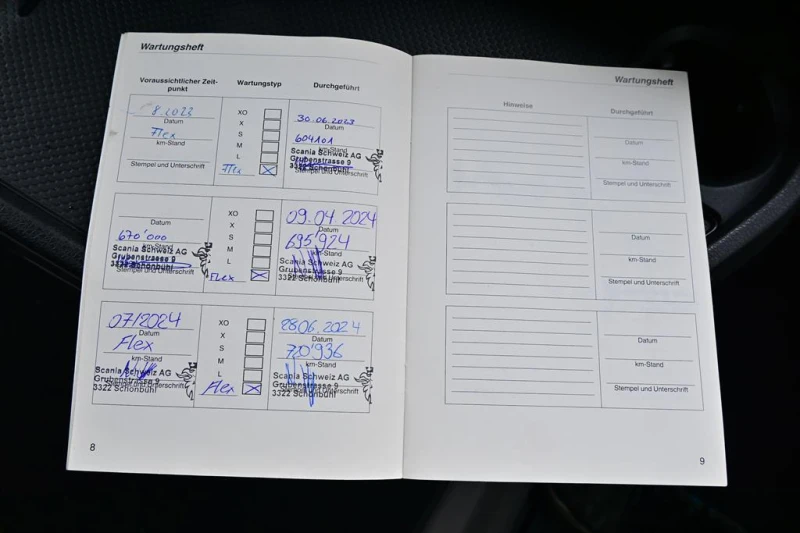 Wartungsheft
Voraussichtlicher Zeit-
punkt
Wartungstyp
Durchgeführt
8.2023
Datum
Flex
km-Stand
Stempel und Unterschrift
XO
X
S
M
L
Flex
30.06.2023
Datum
604101
km-Stand
Scania Schweiz AG
Grubenstrasse 9
3322 Schönbühl
Stempel und Unterschrift
Datum
670'000
km-Stand
Scania Schweiz AG
Grubenstrasse 9
3322 Schönbühl
Stempel und Unterschrift
XO
X
S
M
L
Flex
09.04.2024
Datum
695'924
km-Stand
Scania Schweiz AG
Grubenstrasse 9
3322 Schönbühl
Stempel und Unterschrift
07/2024
Datum
Flex
km-Stand
Scania Schweiz AG
Grubenstrasse 9
3322 Schönbühl
Stempel und Unterschrift
XO
X
S
M
L
Flex
28.06.2024
Datum
km-Stand
Scania Schweiz AG
Grubenstrasse 9
3322 Schönbühl
Stempel und Unterschrift
8
Wartungsheft
Hinweise
Durchgeführt
Datum
km-Stand
Stempel und Unterschrift
Datum
km-Stand
Stempel und Unterschrift
Datum
km-Stand
Stempel und Unterschrift
9